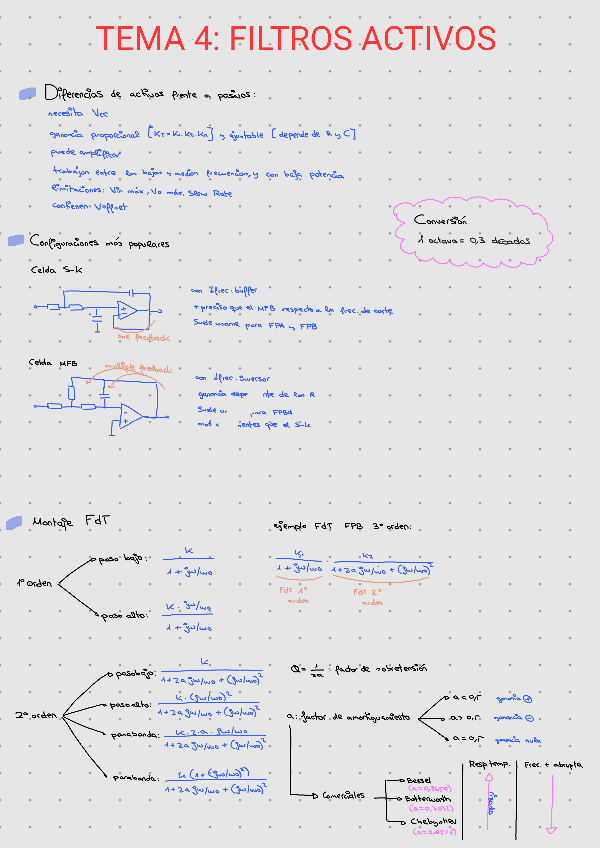 TEMA 4: FILTROS ACTIVOS
Diferencias de activos frente a pasivos:
necesita Vcc
ganancia proporcional [KT=K1·K2·Kn] y ajustable [depende de R y C]
puede amplificar
trabajan entre las bajas y medias frecuencias, y con baja potencia
limitaciones: Vin máx, Vo máx, Slew Rate
contienen Voffset
Conversión
1 octava = 0,3 décadas
Configuraciones más populares
Celda S-k
con ↓frec: buffer
+ preciso que el MFB respecto a la frec. de corte
Suele usarse para FPA y FPB
one feedback
Celda MFB
multiple feedback
con ↓frec: inversor
ganancia de las R
Suele para FPBd
que el S-k
Montaje FdT
ejemplo FdT FPB 3º orden:
1º orden
paso bajo: K / 1 + jw/wo
paso alto: K · jw/wo / 1 + jw/wo
K1 / 1 + jw/wo · K2 / 1+2a jw/wo + (jw/wo)²
FdT 1º orden
FdT 2º orden
2º orden
pasobajo: K / 1+2a jw/wo + (jw/wo)²
pasoalto: K · (jw/wo)² / 1+2a jw/wo + (jw/wo)²
pasabanda: K·2·a· jw/wo / 1+2a jw/wo + (jw/wo)²
parabanda: K(1+(jw/wo)²) / 1+2a jw/wo + (jw/wo)²
Q= 1/2a : factor de sobretensión
a: factor de amortiguamiento
a<0,5 ganancia +
a>0,5 ganancia -
a=0,5 ganancia nula
Comerciales
Bessel
Butterworth
Chebyshev
Resp temp.
Frec. + abrupta
rizado